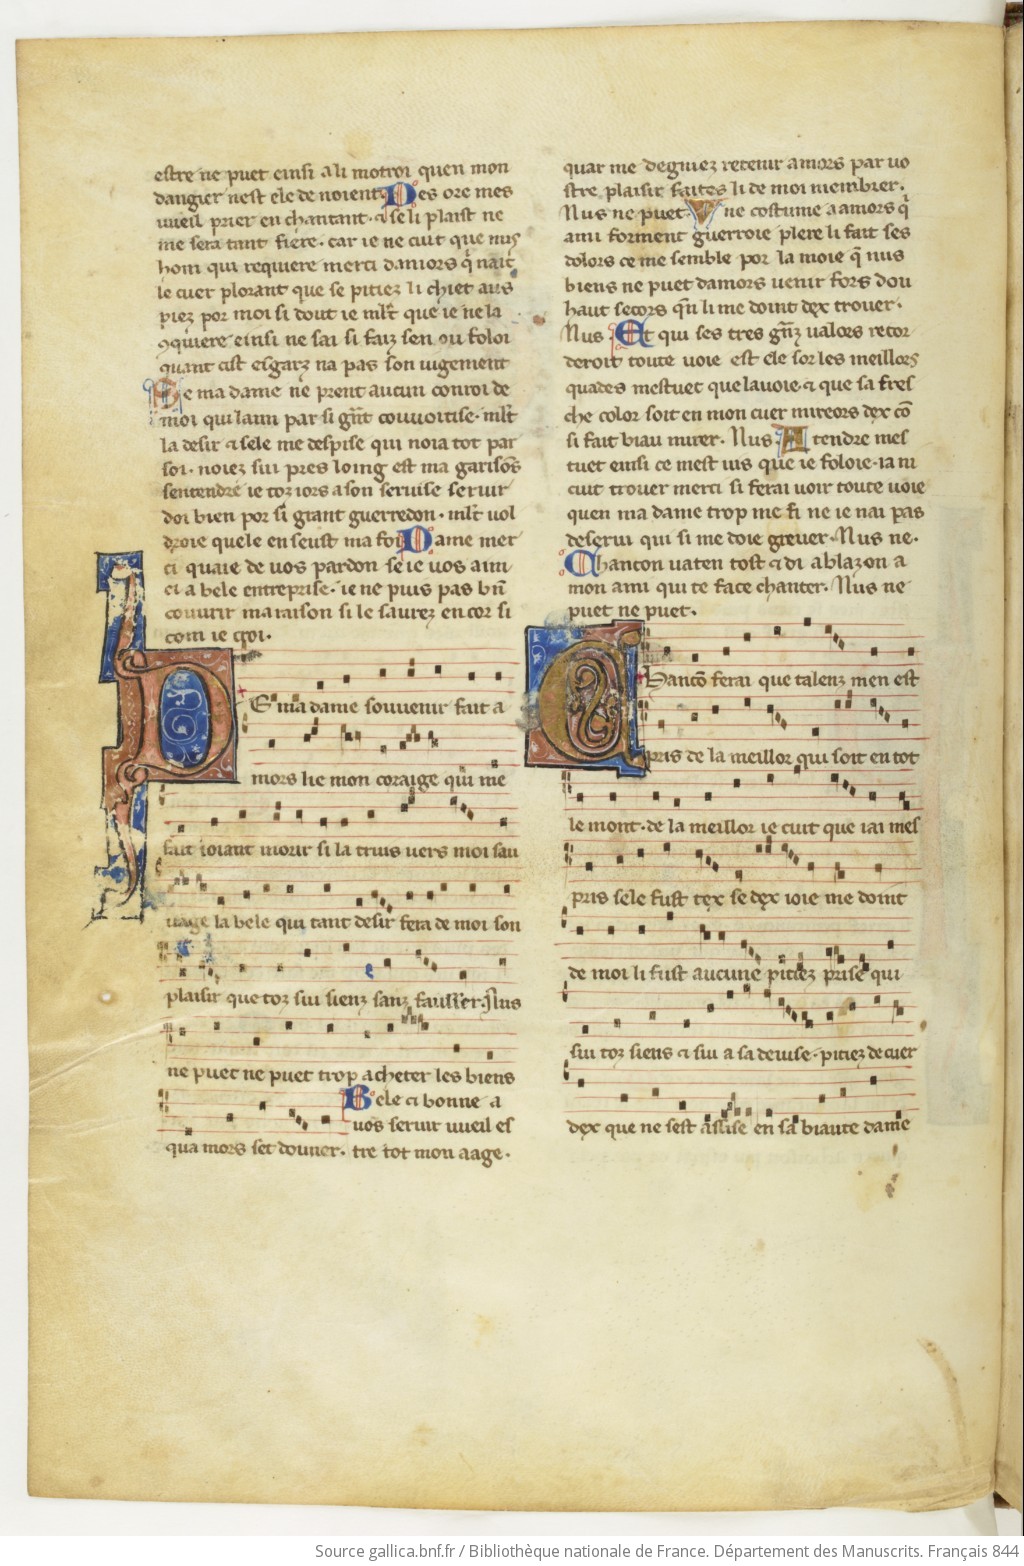 estre ne puet einsi a li motroi quen mon
dangier nest ele de noient Des ore mes
vueil prier en chantant· ⁊ se li plaist ne
me sera tant fiere· car ie ne cuit que nus
hom qui requiere merci damors q̃ nait
le cuer plorant que se pitiez li chiet aus
piez por moi si dout ie ml't que ie ne la
ꝯquiere einsi ne sai si faiz sen ou foloi
quant cist esgarz na pas son iugement
Se ma dame ne prent aucun conroi de
moi qui laim par si g̃nt couuoitise· ml't
la desir ⁊ sele me despise qui noia tot par
soi· noiez sui pres loing est ma garisõs
sentendre ie toz iors a son seruise seruir
doi bien por si grant guerredon· ml't uol
droie quele en seust ma foi Dame mer
ci quaie de uos pardon se ie uos aim
ci a bele entreprise· ie ne puis pas bñ
couurir ma raison si le saurez encor si
com ie croi·
DE ma dame souuenir fait a
mors lie mon coraige qui me
fait ioiant morir si la truis uers moi sau
uage la bele qui tant desir fera de moi son
plaisir que toz sui siens sanz fausser· Nus
ne puet ne puet trop acheter les biens
qua mors set douner·
Bele ⁊ bonne a
uos seruir vueil es
tre tot mon aage·
quar me degniez retenir amors par uo
stre plaisir faites li de moi membrer·
Nus ne puet· Vne costume a amors q̃
ami forment guerroie plere li fait ses
dolors ce me semble por la moie q̃ nus
biens ne puet damors uenir fors dou
haut secors qñ li me doint dex trouer·
Nus· Et qui ses tres g̃nz ualoes recor
deroit toute uoie est ele sor les meillors
quades mestuet que la uoie· ⁊ que sa fres
che color soit en mon cuer mireors dex cõ
si fait biau mirer· Nus· Atendre mes
tuet einsi ce mest uis que ie foloie· ia ni
cuit trouer merci si ferai uoir toute uoie
quen ma dame trop me fi ne ie nai pas
deserui qui si me doie greuer· Nus ne·
Chancon uaten tost ⁊ di a blazon a
mon ami qui te face chanter· Nus ne
puet ne puet·
Chancõ ferai que talenz men est
pris de la meillor qui soit en tot
le mont· de la meillor ie cuit que iai mes
pris sele fust tex se dex ioie me doint
de moi li fust aucune pitiez prise qui
sui toz siens ⁊ sui a sa deuise· pitiez de cuer
dex que ne sest assise en sa biaute dame
Source gallica.bnf.fr / Bibliothèque nationale de France. Département des Manuscrits. Français 844